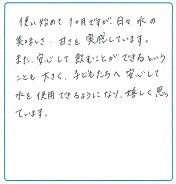 使い始めて10月ですが、日々水の
美味しさ、甘さを実感しています。
また、安心して飲むことができるという
ことも大きく、子どもたちへ安心して
水を使用できるようになり、嬉しく思っ
ています。